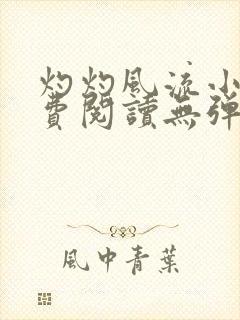 灼灼風流小
費閱讀無彈
風中青葉